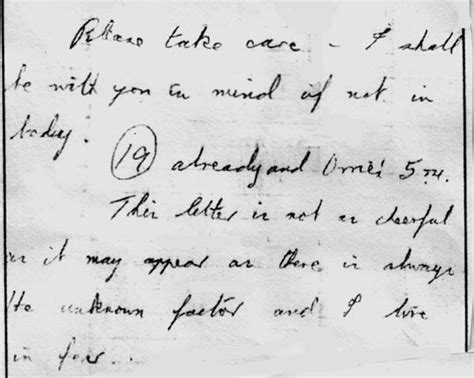 Please take care - I shall
be with you in mind if not in
body.
(19) already and Orne's 5 m.
This letter is not as cheerful
as it may appear as there is always
the unknown factor and I live
in fear...